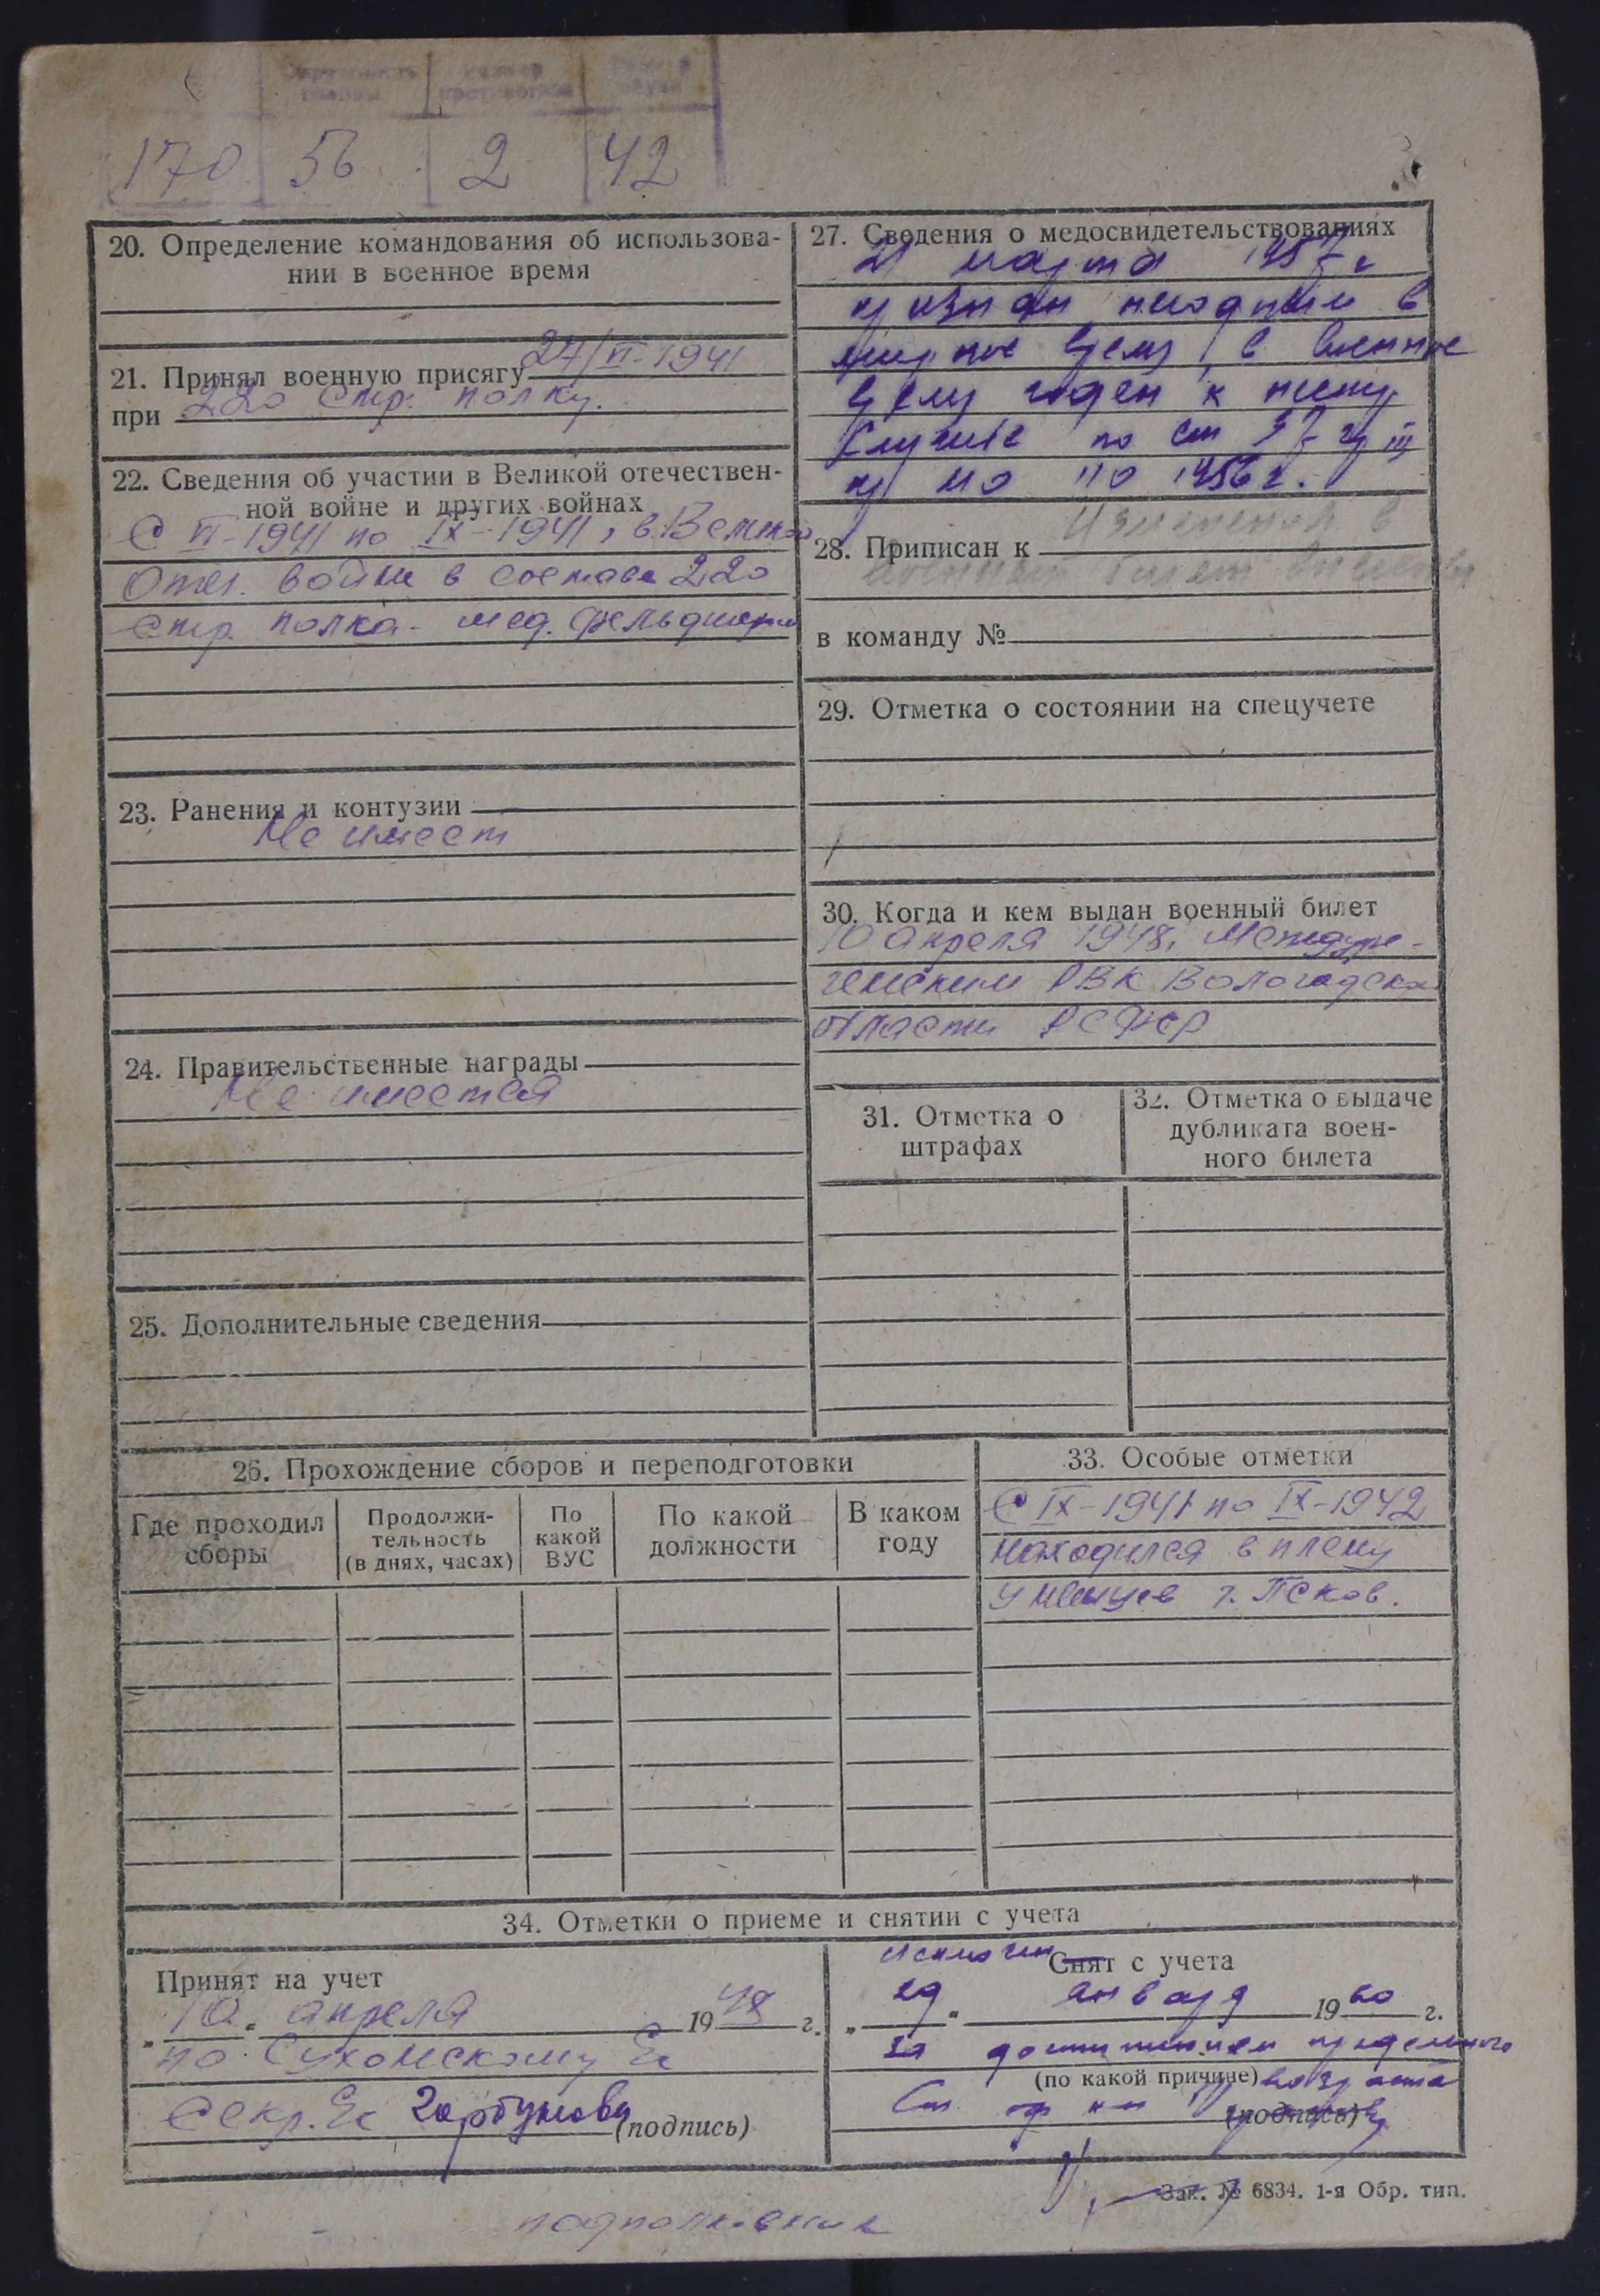 Размер
170 56 2 42
20. Определение командования об использова-
нии в военное время
21. Принял военную присягу 24/VI-1941
при 220 Стр. полку.
22. Сведения об участии в Великой отечествен-
ной войне и других войнах
С VI-1941 по IX-1941, в Велико
Отеч. войне в составе 220
Стр. полка - мед. фельдшером
23. Ранения и контузии
Не имеет
24. Правительственные награды
Не имеется
25. Дополнительные сведения
27. Сведения о медосвидетельствованиях
21 марта 1957 г
признан негодным в
мирное время, в военное
время годен к
службе по ст 37 гр III
пр МО 110 1956 г.
28. Приписан к Изменения в
военный билет внесены
в команду №
29. Отметка о состоянии на спецучете
30. Когда и кем выдан военный билет
10 апреля 1948, Междуре-
ченским РВК Вологодской
области РСФСР
31. Отметка о
штрафах
32. Отметка о выдаче
дубликата воен-
ного билета
26. Прохождение сборов и переподготовки
Где проходил
сборы
Продолжи-
тельность
(в днях, часах)
По
какой
ВУС
По какой
должности
В каком
году
33. Особые отметки
С IX-1941 по IX-1942
находился в плену
у немцев г. Псков.
34. Отметки о приеме и снятии с учета
Принят на учет
„10" апреля 1948 г.
по Сухонскому
Секр. Горбунова
(подпись)
исключен Снят с учета
„29" января 1960 г.
за достижением предельного
(по какой причине) возраста
(подпись)
Зак. № 6834. 1-я Обр. тип.
подполковник